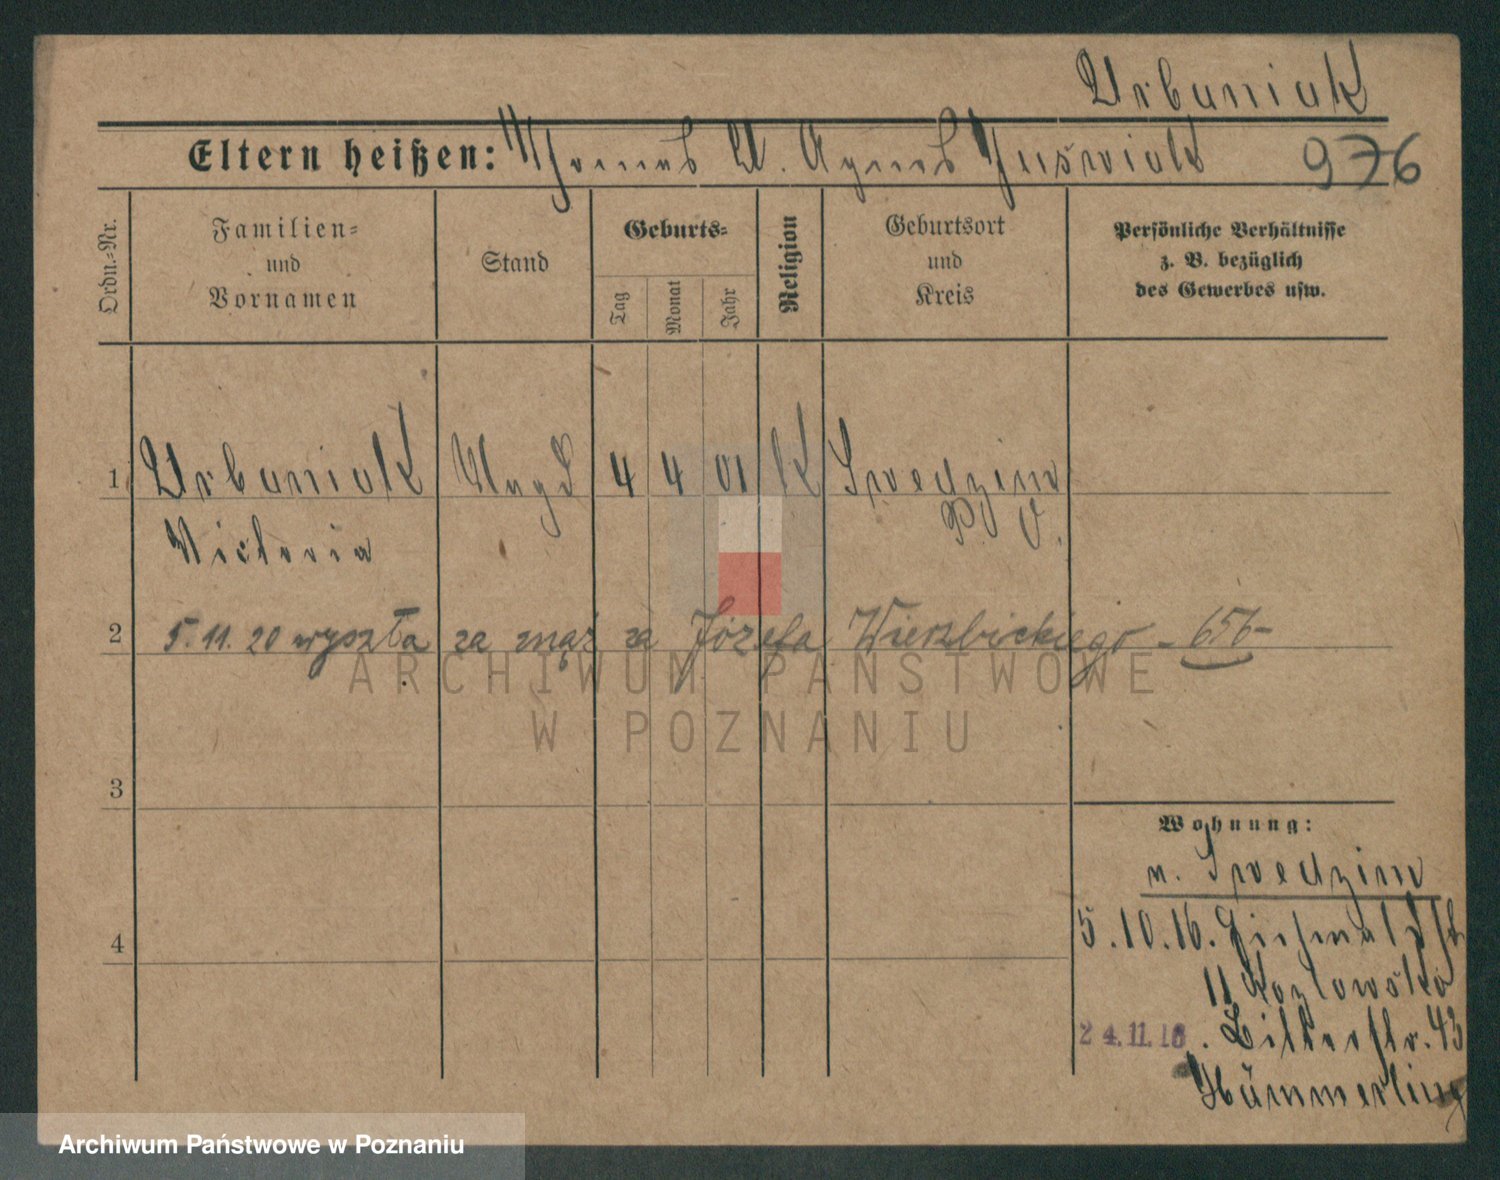 Urbaniak
Eltern heißen: Thomas U. Agnes Juświak 976
Ordn.-Nr.
Familien- und Vornamen
Stand
Geburts-
Tag
Monat
Jahr
Religion
Geburtsort und Kreis
Persönliche Verhältnisse z. B. bezüglich des Gewerbes usw.
1 Urbaniak Magd 4 4 01 K Swedzim
P. O.
Victoria
2 5.11.20 wyszła za mąż za Józefa Wierzbickiego - 656-
ARCHIWUM PAŃSTWOWE
W POZNANIU
3
Wohnung:
n. Swedzim
4
5.10.16.
11 Kozlowska
24.11.16. Ritterstr. 43
Hümmerling
Archiwum Państwowe w Poznaniu